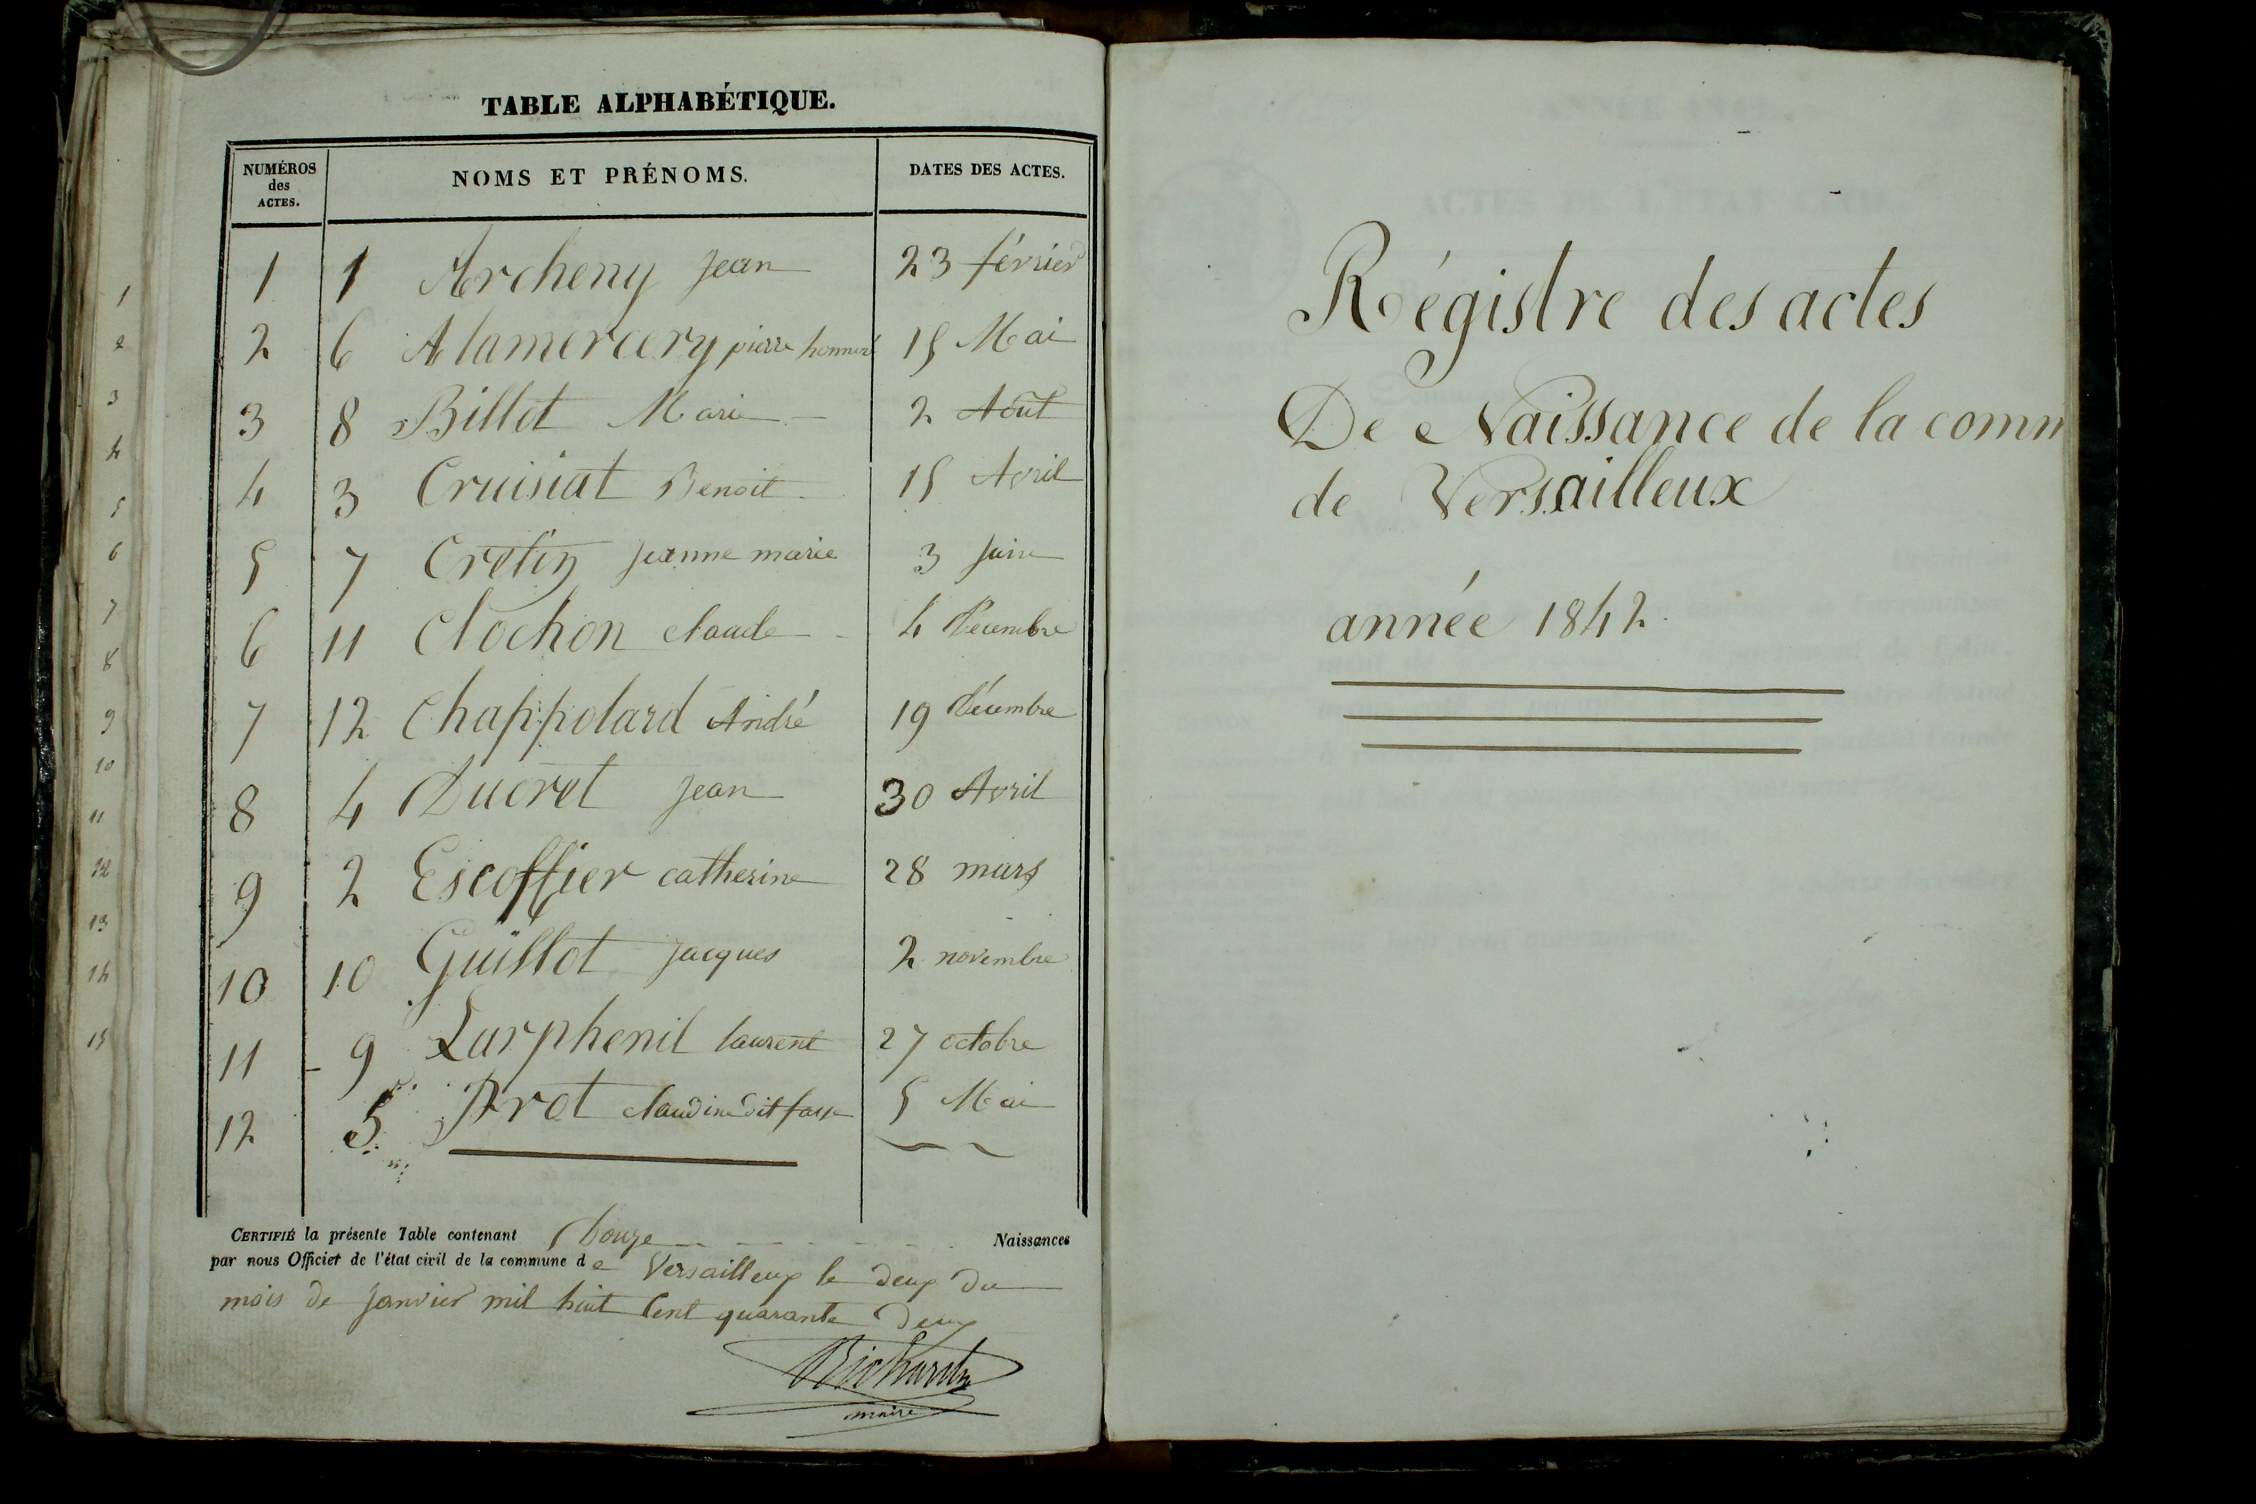 TABLE ALPHABÉTIQUE.
NUMÉROS des ACTES. NOMS ET PRÉNOMS. DATES DES ACTES.
1 1 Archeny Jean 23 février
2 6 Alamercery pierre honnoré 15 Mai
3 8 Billot Marie 2 Août
4 3 Cruisiat Benoit 15 Avril
5 7 Cretin Jeanne marie 3 Juin
6 11 Clochon claude 4 Décembre
7 12 Chappolard André 19 Décembre
8 4 Ducret Jean 30 Avril
9 2 Escoffier catherine 28 mars
10 10 Guillot Jacques 2 novembre
11 9 Larphenil laurent 27 octobre
12 5 Prot claudine dit 5 Mai
CERTIFIÉ la présente Table contenant Douze Naissances
par nous Officier de l'état civil de la commune de Versailleux le deux du
mois de Janvier mil huit Cent quarante deux
Richardin
maire
1
2
3
4
5
6
7
8
9
10
11
12
13
14
15
Régistre des actes
De Naissance de la comm
de Versailleux
année 1842.